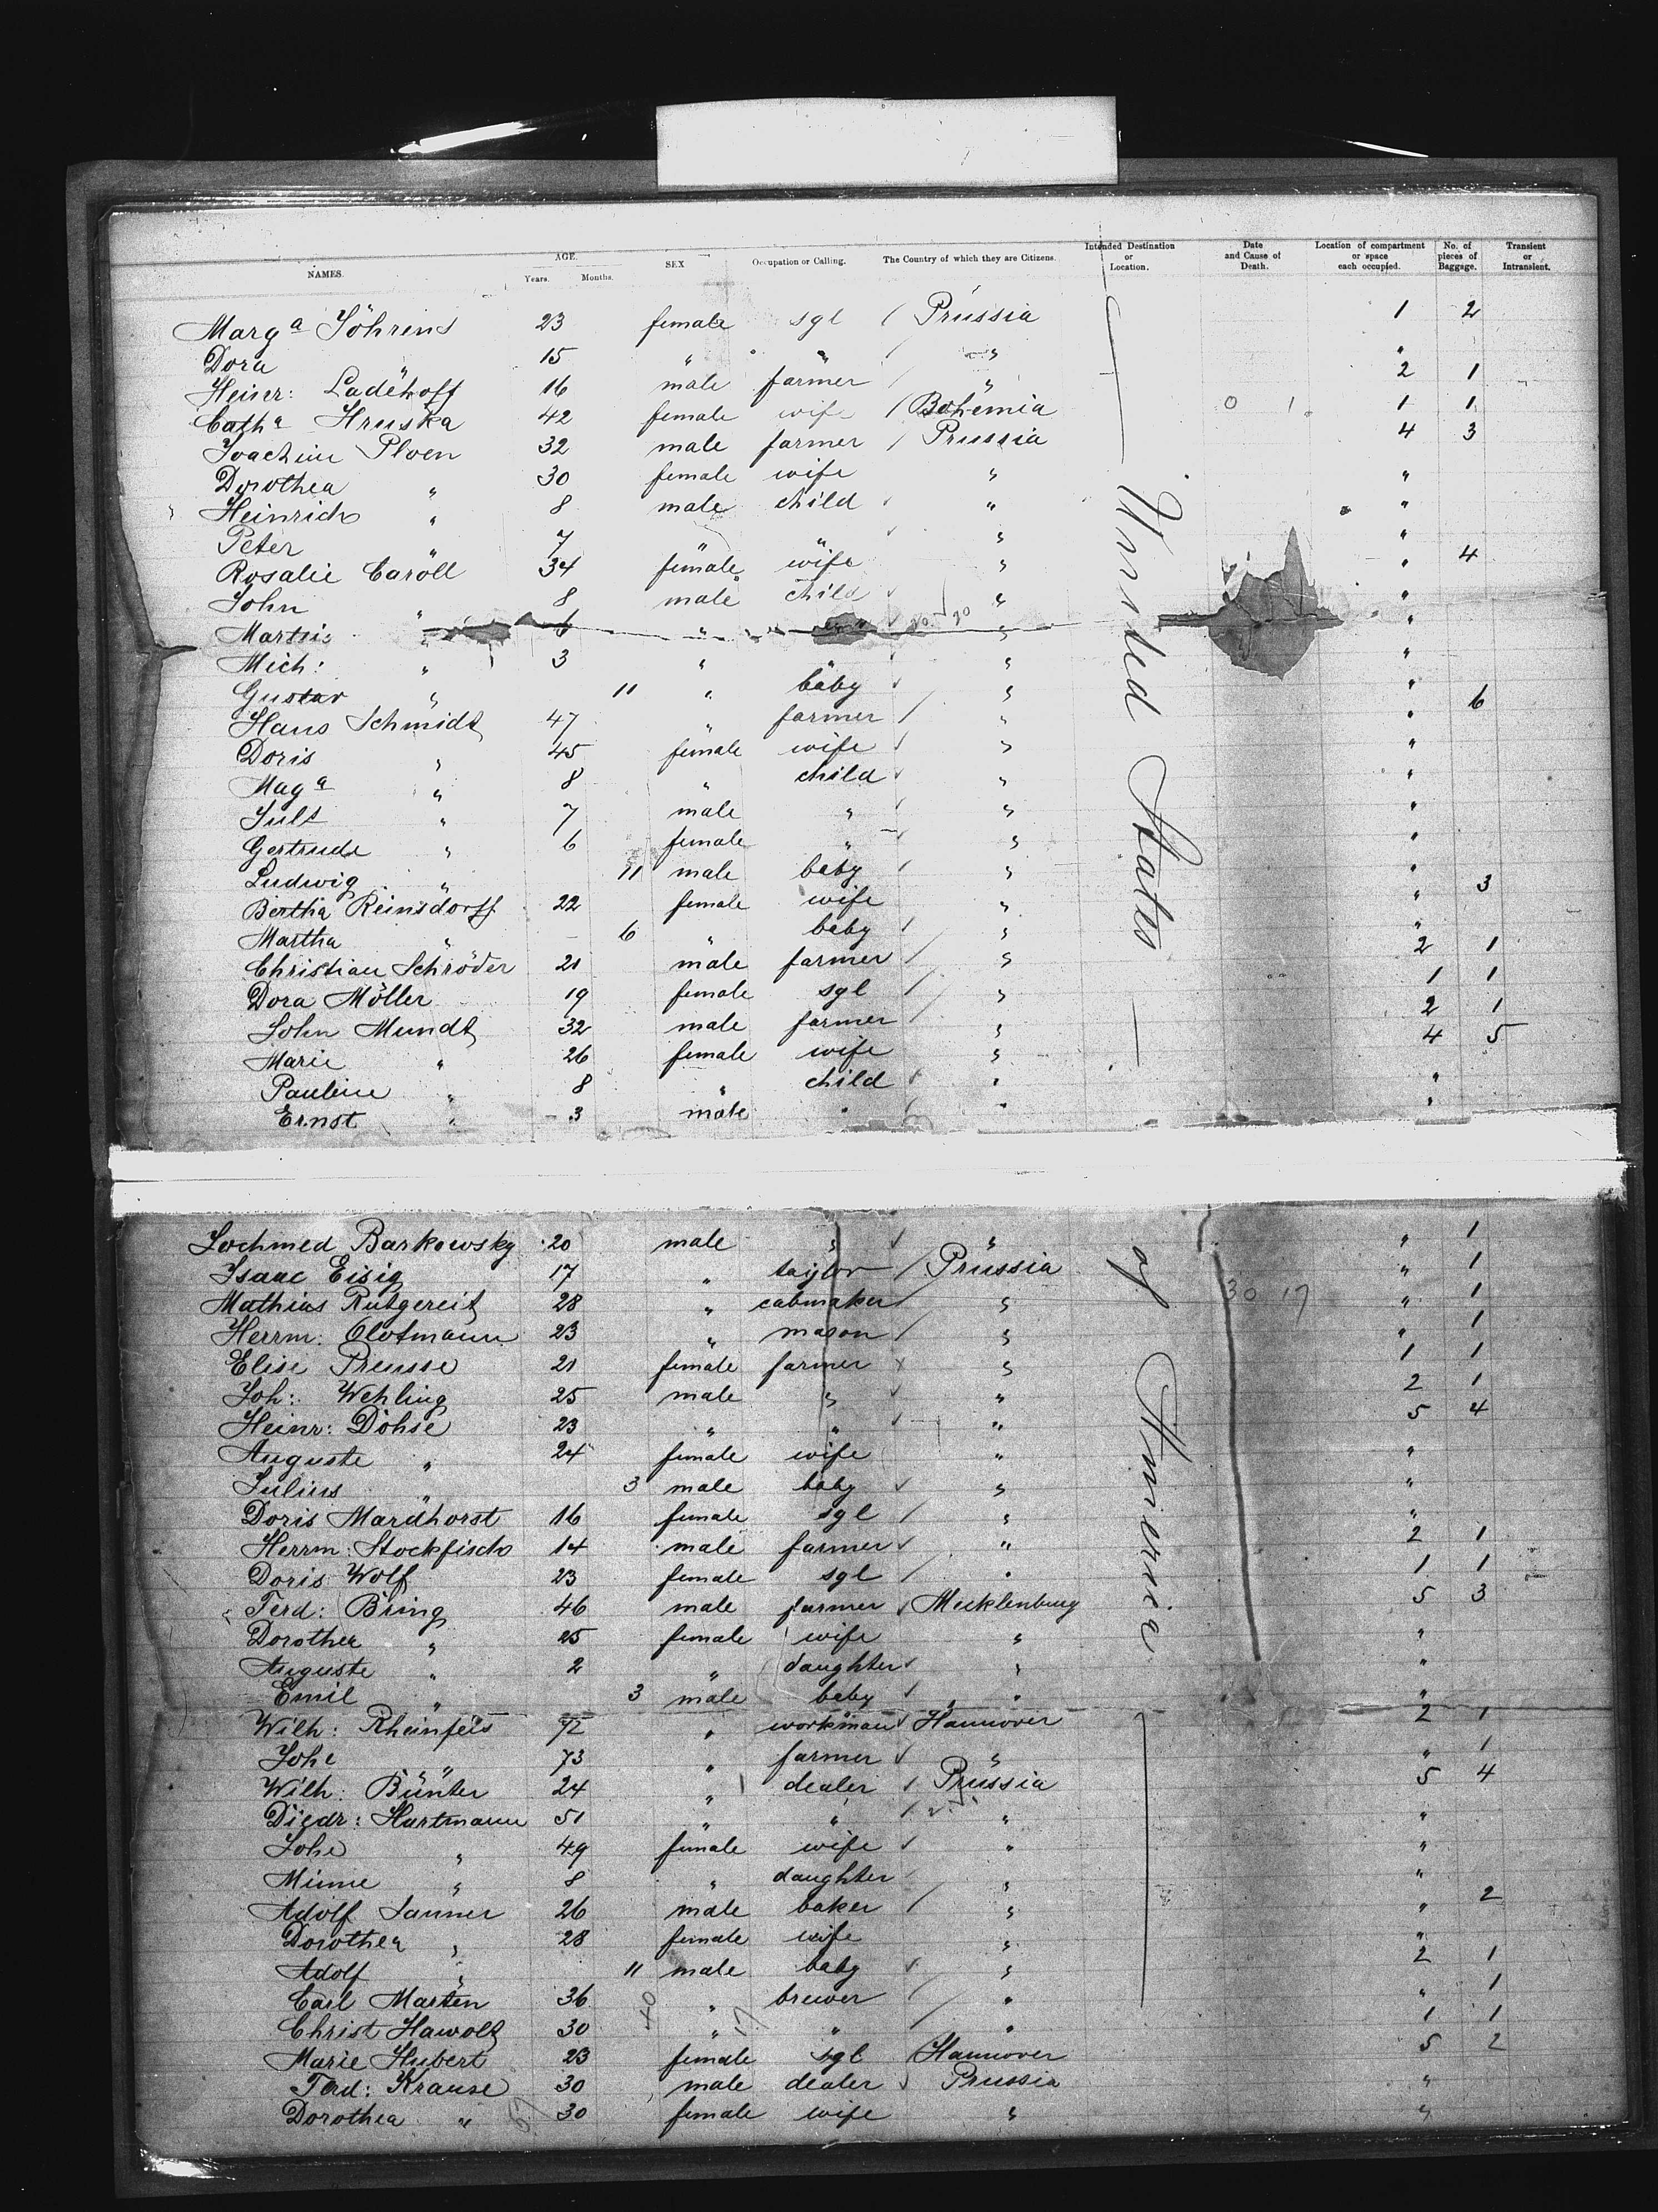 NAMES. AGE. Years. Months. SEX Occupation or Calling. The Country of which they are Citizens. Intended Destination or Location. Date and Cause of Death. Location of compartment or space each occupied. No. of pieces of Baggage. Transient or Intransient.
Marga Föhrens 23 female sgl / Prussia 1 2
Dora 15 " " / " "
Heinr: Ladehoff 16 male farmer / " 2 1
Catha Hruska 42 female wife / Bohemia 0 1 1 1
Joachim Ploen 32 male farmer / Prussia 4 3
Dorothea " 30 female wife " "
Heinrich " 8 male child " "
Peter 7 " " " "
Rosalie Caroll 34 female wife " " 4
John " 8 male child " "
Martin " 6 " " " "
Mich: " 3 " " "
Gustav " 11 " baby " "
Hans Schmidt 47 " farmer / " " 6
Doris " 45 female wife " "
Maga " 8 " child " "
Jult " 7 male " " "
Gertrude " 6 female " " "
Ludwig " 11 male baby " "
Bertha Reinsdorff 22 female wife " " 3
Martha " 6 " baby " "
Christian Schröder 21 male farmer / " 2 1
Dora Möller 19 female sgl / " 1 1
John Mundt 32 male farmer / " 2 1
Marie " 26 female wife " 4 5
Pauline " 8 " child " "
Ernst " 3 male " " "
United States
of America
Barkowsky 20 male " " " 1
Isaac Eisig 17 " taylor / Prussia " 1
Mathias Rutgereit 28 " cabmaker / " 30 17 " 1
Herrm: Clotmann 23 " mason / " " 1
Elise Preusse 21 female farmer " 1 1
Joh: Wehling 25 male " " 2 1
Heinr: Döhse 23 " " " 5 4
Auguste " 24 female wife " "
Julius " 3 male baby " "
Doris Mardhorst 16 female sgl / " "
Herrm: Stockfisch 14 male farmer " 2 1
Doris Wolf 23 female sgl / " 1 1
Ferd: Bring 46 male farmer Mecklenburg 5 3
Dorothea " 25 female wife " "
Auguste " 2 " daughter " "
Emil " 3 male baby " "
Wilh: Rheinfels 72 " workman Hannover 2 1
Johe " 73 " farmer " " 1
Wilh: Bünter 24 " dealer / Prussia 5 4
Diedr: Hartmann 51 " " / " "
Johe " 49 female wife " "
Minne " 8 " daughter " "
Adolf Sanner 26 male baker / " " 2
Dorothea " 28 female wife " "
Adolf " 11 male baby " 2 1
Carl Marten 36 " brewer / " " 1
Christ Hawolt 30 40 " 17 " / " 1 1
Marie Hubert 23 female sgl / Hannover 5 2
Ferd: Krause 30 male dealer Prussia "
Dorothea " 57 30 female wife " "